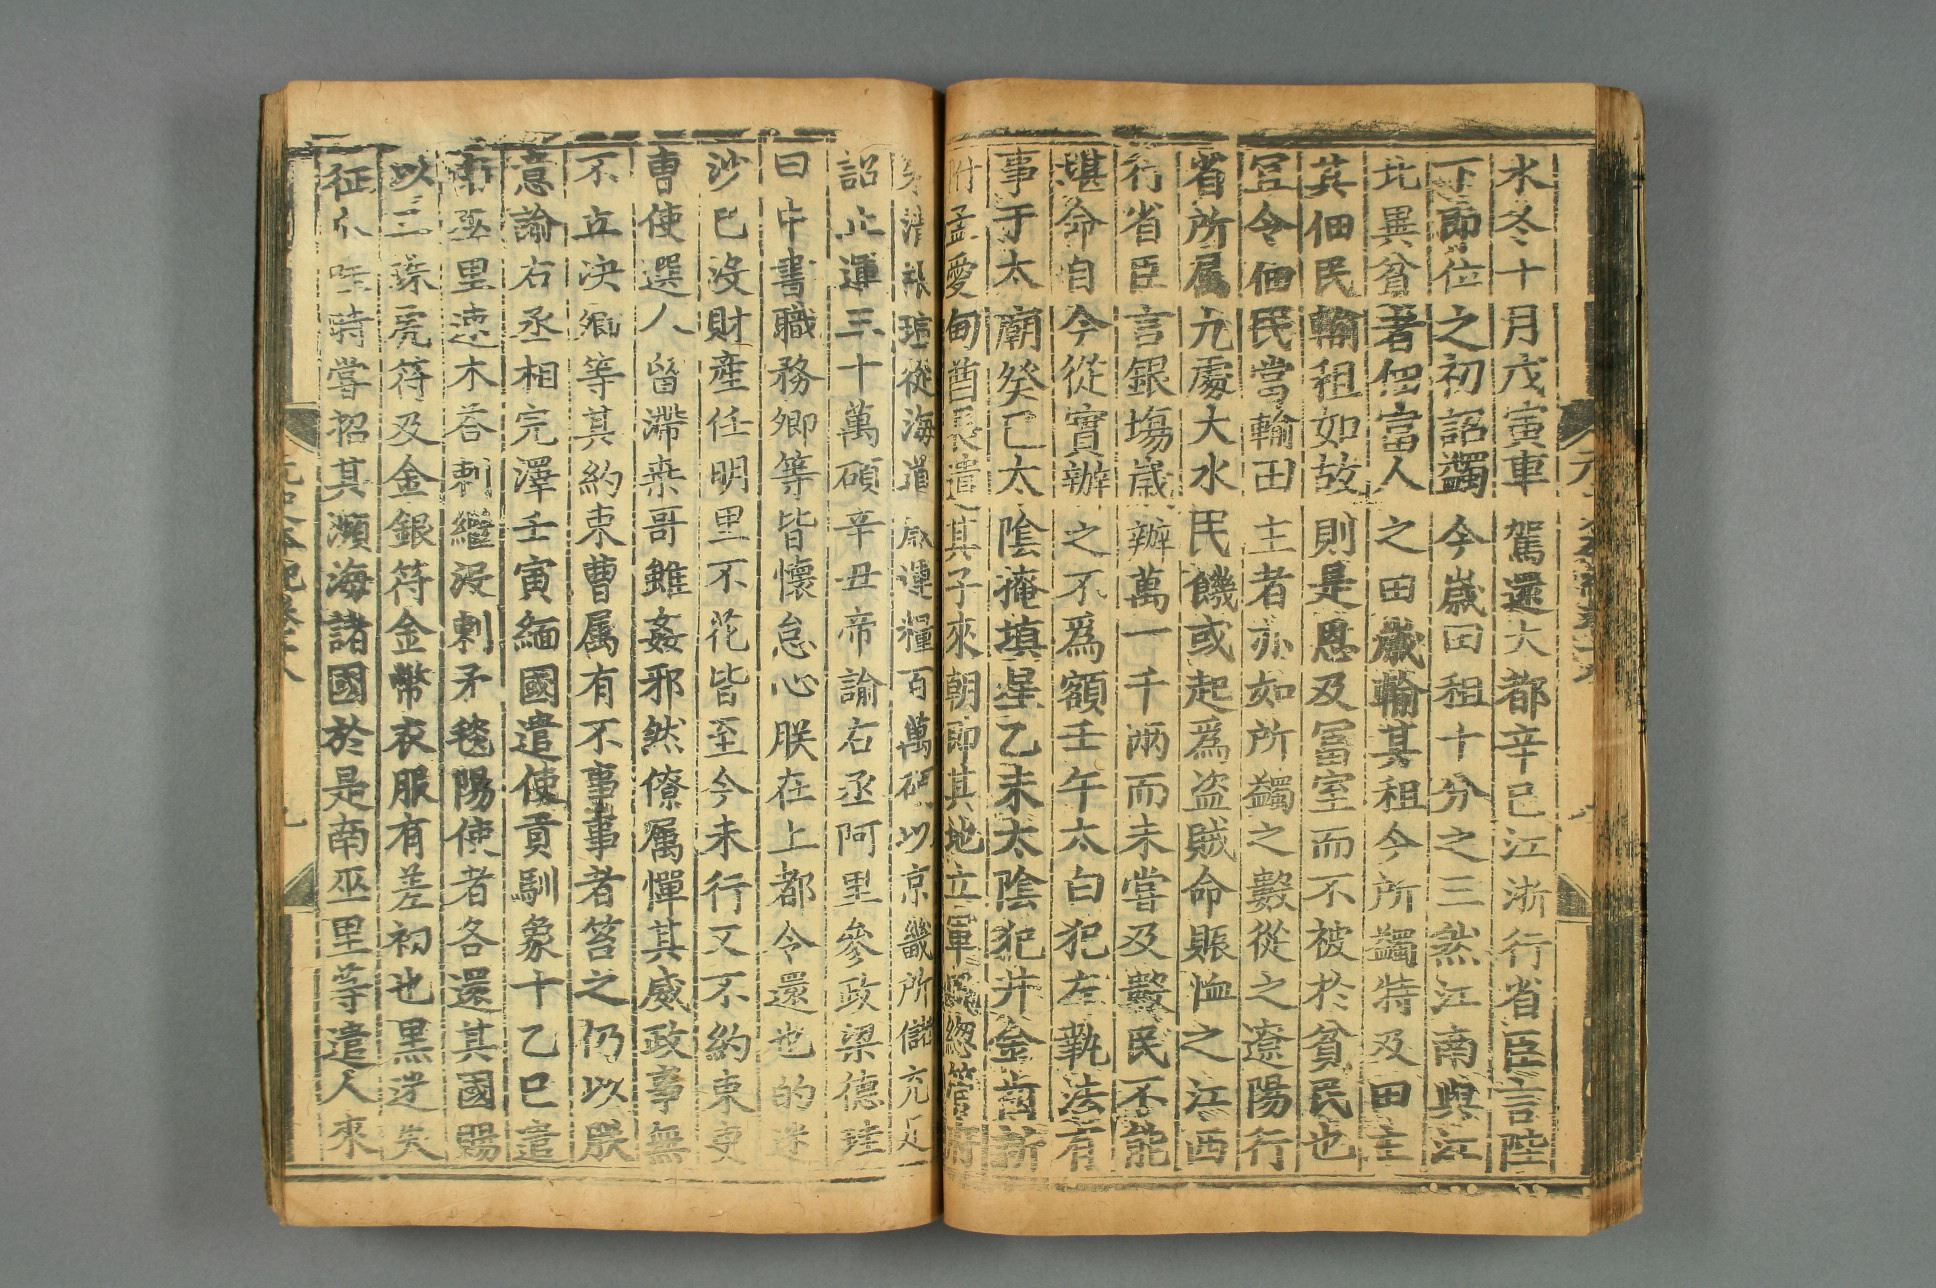 水冬十月戊寅車駕還大都辛巳江浙行省臣言陛
下即位之初詔蠲今歲田租十分之三然江南與江
北異貧者佃富人之田歲輸其租今所蠲特及田主
其佃民輸租如故則是恩及富室而不被於貧民也
宜令佃民當輸田主者亦如所蠲之數從之遼陽行
省所属九處大水民饑或起爲盗賊命賑恤之江西
行省臣言銀場歲辦萬一千兩而未嘗及數民不能
堪命自今從實辦之不爲額壬午太白犯左執法有
事于太廟癸巳太陰掩填星乙未太陰犯井金齒新
附孟愛甸酋長遣其子來朝即其地立軍民總管府
清瑄從海道歲運糧百萬碩以京畿所儲充足
詔止運三十萬碩辛丑帝諭右丞阿里參政梁德珪
曰中書職務卿等皆懷怠心朕在上都令還也的迷
沙已没財産任明里不花皆至今未行又不約束吏
曹使選人皆滯桒哥雖姦邪然僚属憚其威政事無
不立决卿等其約束曹属有不事事者笞之仍以朕
意諭右丞相完澤壬寅緬國遣使貢馴象十乙巳遣
南巫里速木荅剌繼没剌矛毯陽使者各還其國賜
以三珠虎符及金銀符金幣衣服有差初也黑迷失
征爪哇時嘗招其瀕海諸國於是南巫里等遣人來
元史本紀卷十八
九